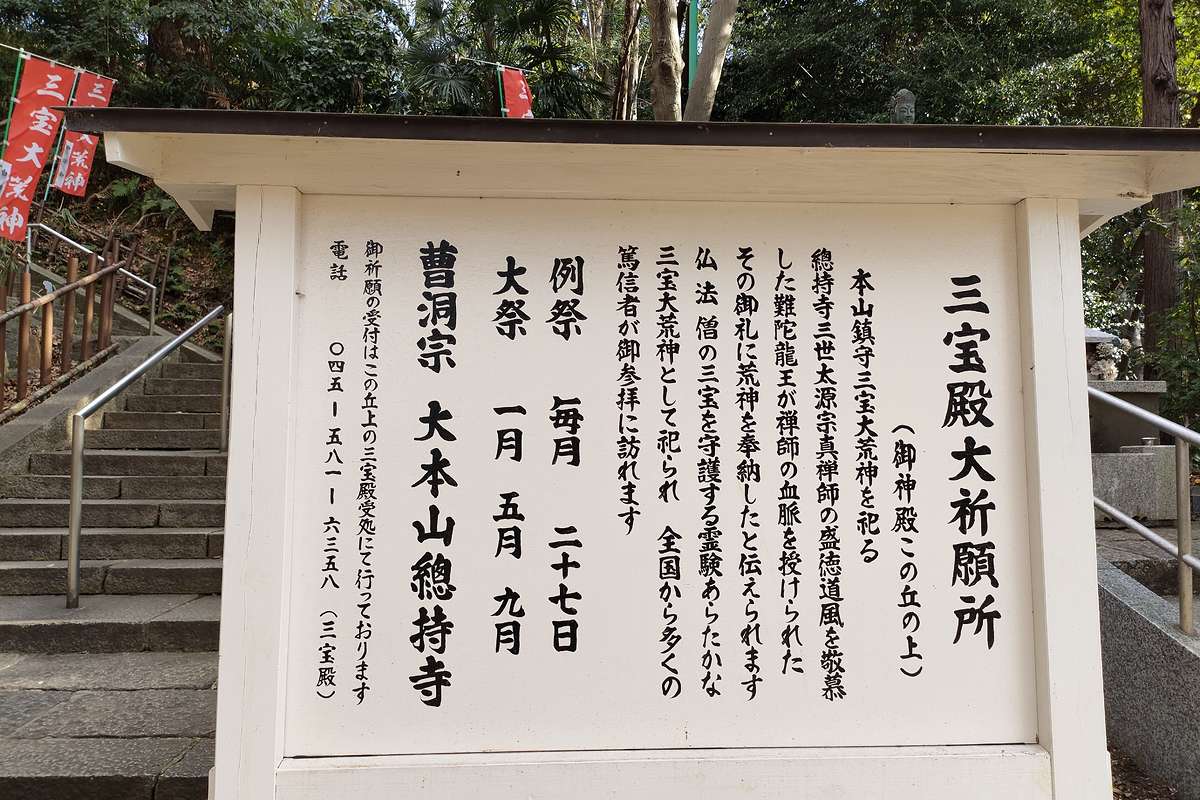 三宝殿大祈願所
（御神殿この丘の上）
本山鎮守三宝大荒神を祀る
總持寺三世太源宗真禅師の盛徳道風を敬慕
した難陀龍王が禅師の血脈を授けられた
その御礼に荒神を奉納したと伝えられます
仏 法 僧の三宝を守護する霊験あらたかな
三宝大荒神として祀られ 全国から多くの
篤信者が御参拝に訪れます
例祭 毎月 二十七日
大祭 一月 五月 九月
曹洞宗 大本山總持寺
御祈願の受付はこの丘上の三宝殿受処にて行っております
電話 〇四五ー五八一ー六三五八（三宝殿）
三宝大荒神
三宝大荒神
三